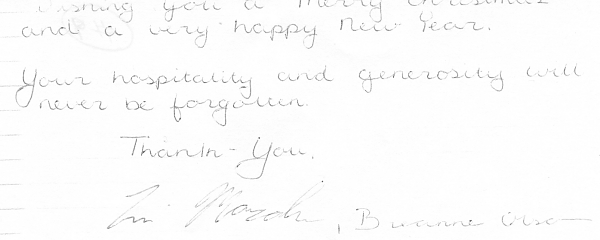 Wishing you a Merry Christmas
and a very happy New Year.
Your hospitality and generosity will
never be forgotten.
Thank-You.